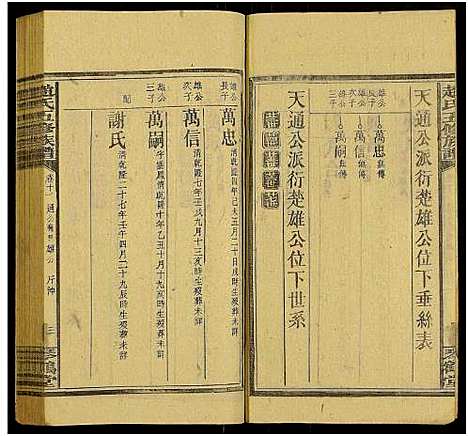 趙氏五修族譜
天通公派衍楚雄公位下垂絲表
雄公長子 萬忠 無傳
雄公次子 萬信 無傳
雄公三子 萬嗣 無傳
天通公派衍楚雄公位下世系
琴鶴堂
趙氏五修族譜
卷十一
三
琴鶴堂
雄公長子 萬忠 清乾隆四年己未五月二十日戌時生歿葬未詳
雄公次子 萬信 清乾隆七年壬戌九月十三亥時生歿葬未詳
雄公三子 萬嗣 清乾隆二十年乙亥十月十九亥時生歿葬未詳
配 謝氏 清乾隆二十七年壬午四月二十九辰時生歿葬未詳